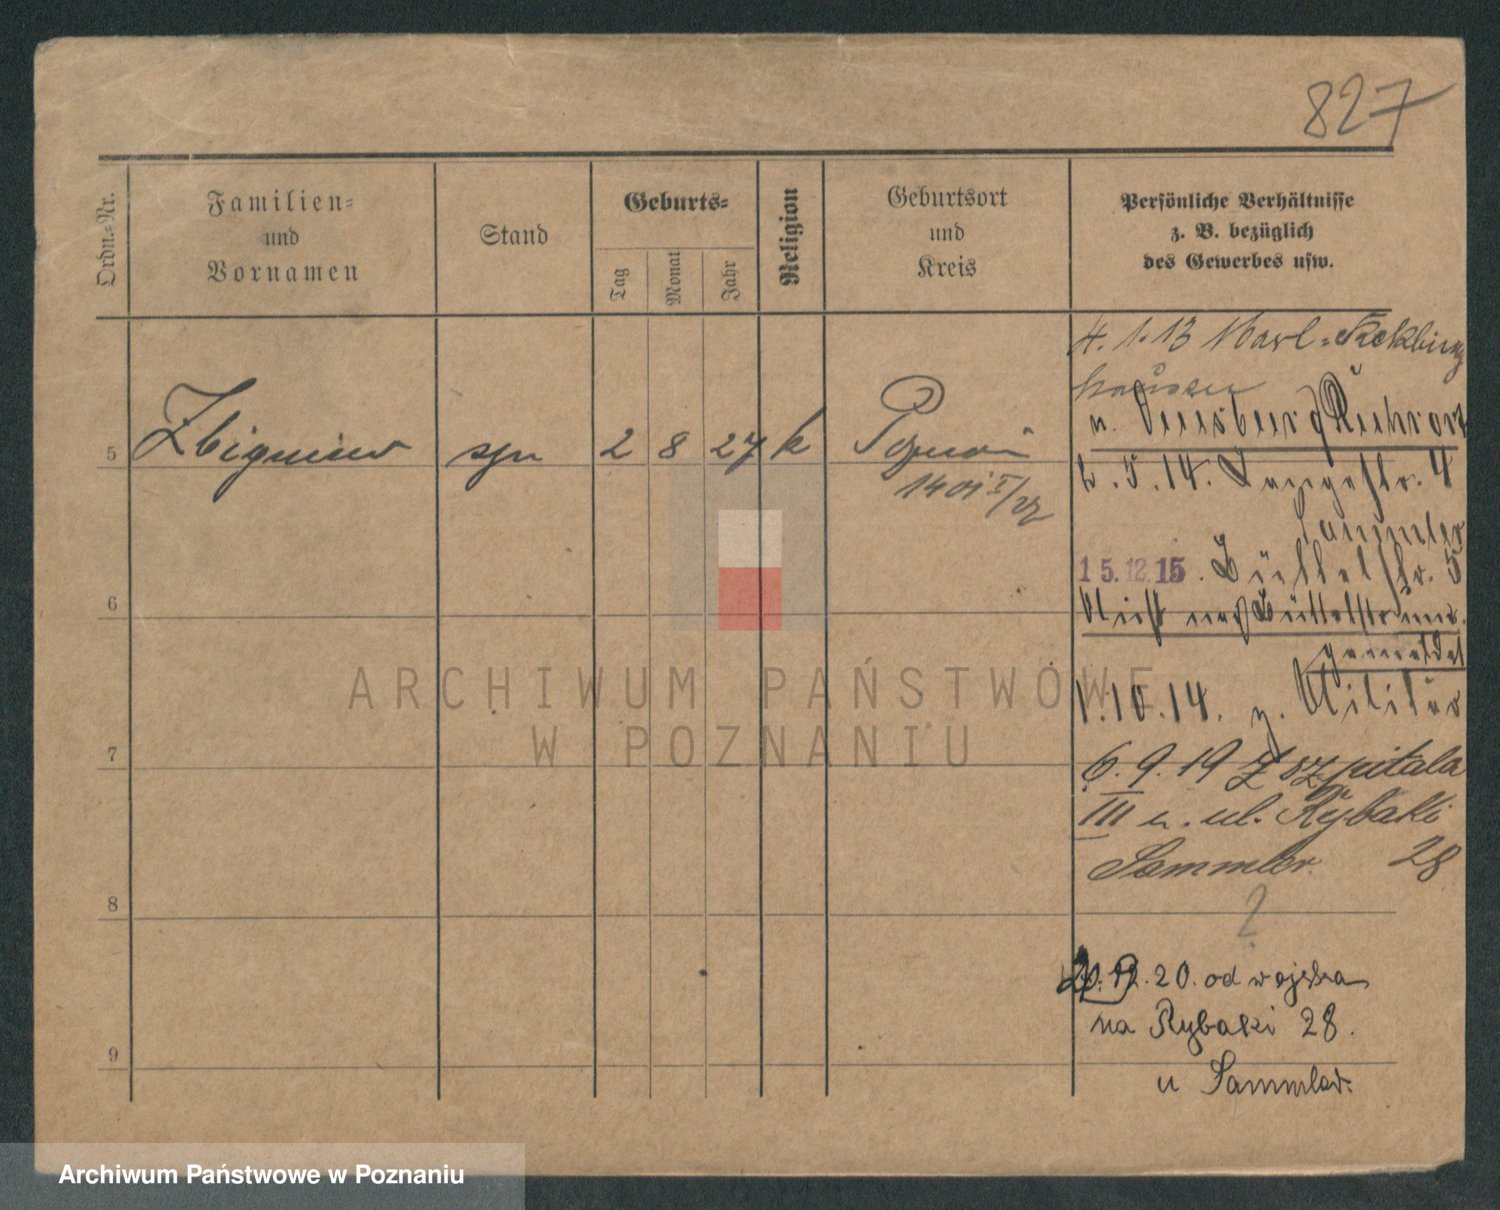 827
Ordn.-Nr.
Familien-
und
Vornamen
Stand
Geburts-
Tag
Monat
Jahr
Religion
Geburtsort
und
Kreis
Persönliche Verhältnisse
z. B. bezüglich
des Gewerbes usw.
5 Zbigniew syn 2 8 27 k Poznań
6
7
8
9
4. 1. 13 Marl-Reckling
hausen
u. Duisburg Ruhrort
2. 5. 14. Langestr. 4
Sammler
15.12.15. Büttelstr. 5
Nicht nach Büttelstr. um-
gemeldet
1. 10. 14. z. Militär
6. 9. 19 z szpitala
III u. ul. Rybaki
Sammler. 28
?
20. 12. 20. od wojska
na Rybaki 28.
u Sammler.
ARCHIWUM PAŃSTWOWE
W POZNANIU
Archiwum Państwowe w Poznaniu